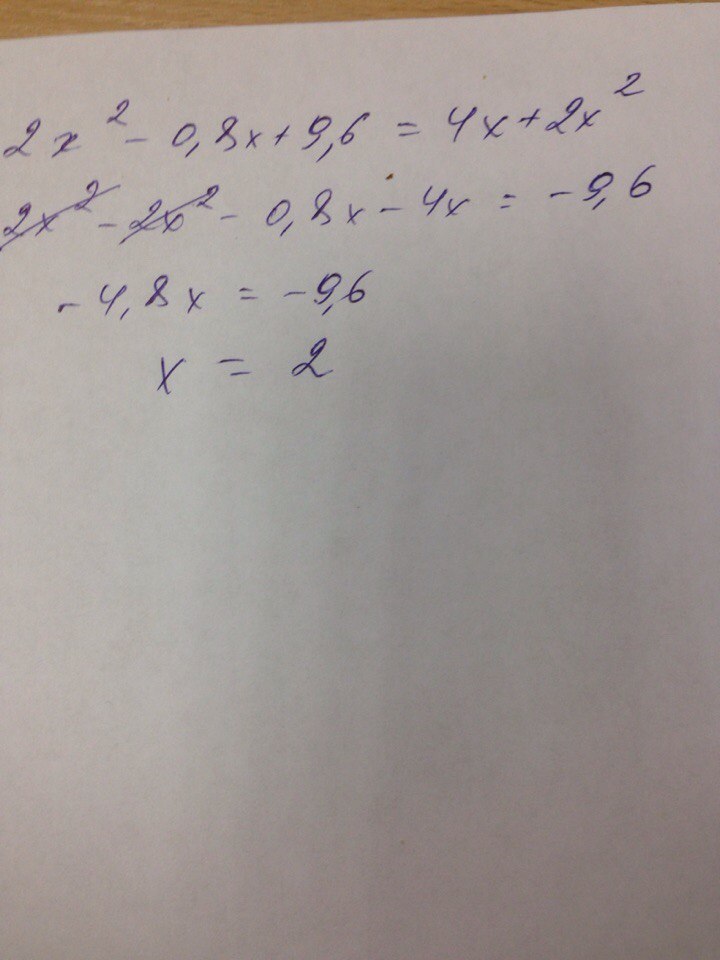 2x² - 0,8x + 9,6 = 4x + 2x²
2x² - 2x² - 0,8x - 4x = -9,6
-4,8x = -9,6
x = 2